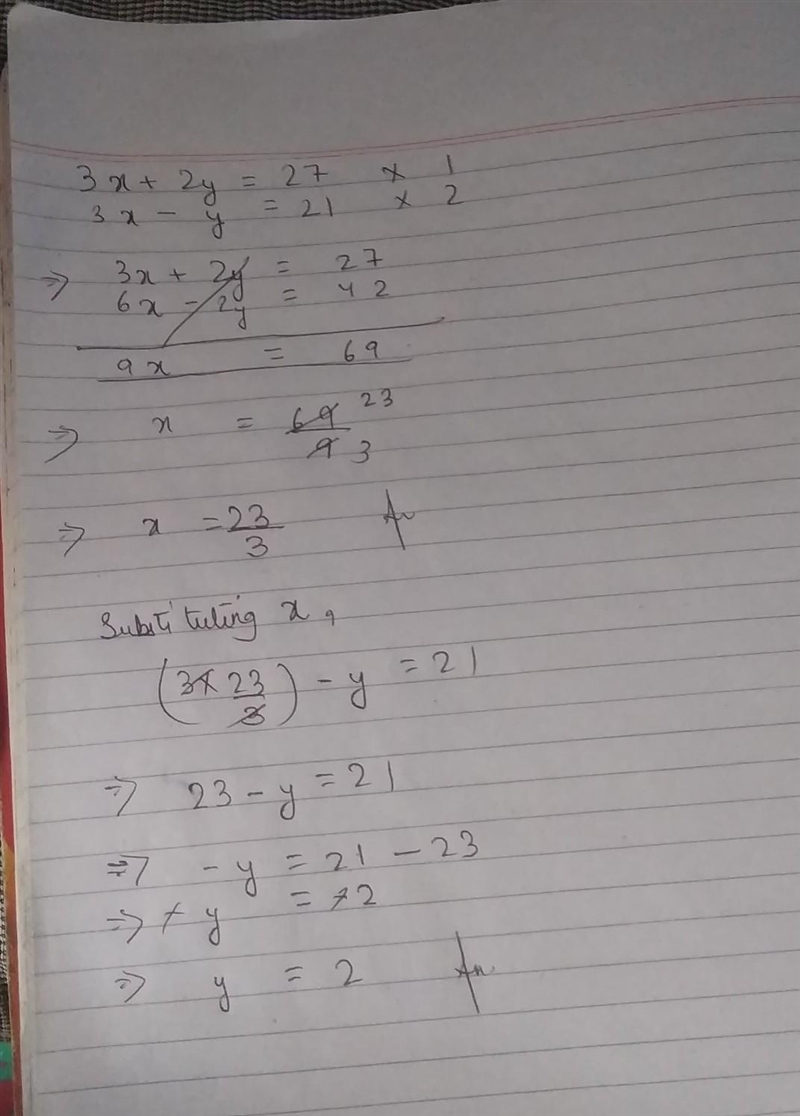 3x + 2y = 27 × 1
3x - y = 21 × 2
⇒ 3x + 2y = 27
6x - 2y = 42
9x = 69
⇒ x = 69/9 23/3
⇒ x = 23/3 An
Substituting x,
(3×23/3) - y = 21
⇒ 23 - y = 21
⇒ - y = 21 - 23
⇒ - y = -2
⇒ y = 2 An.